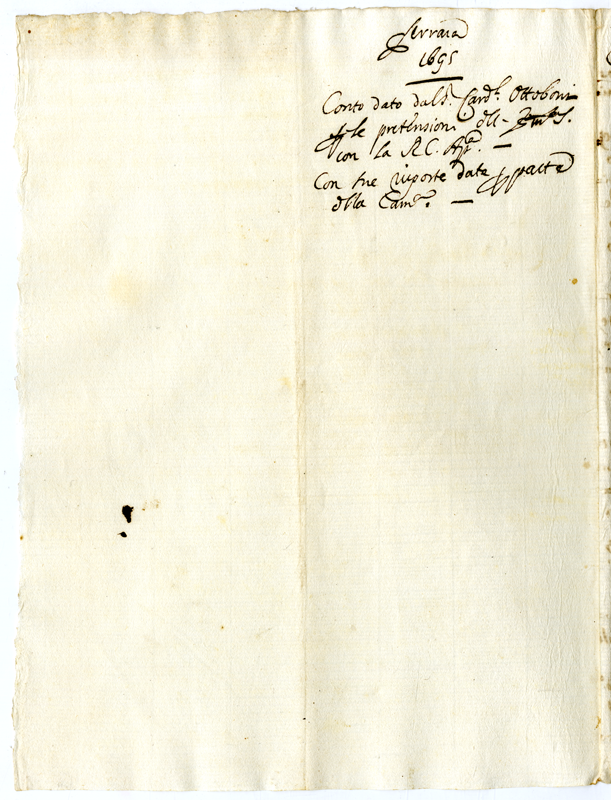 Ferrara
1695
Conto dato dal S.r Card.l Ottoboni
p le pretensioni dell-
con la R.C. Ap.ca —
Con sue risposte date p parte
della Cam.ra —